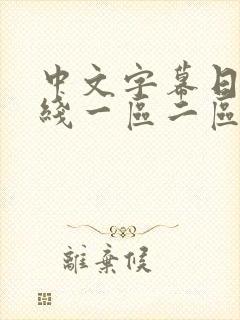 中文字幕日
綫一區二區
離棄候